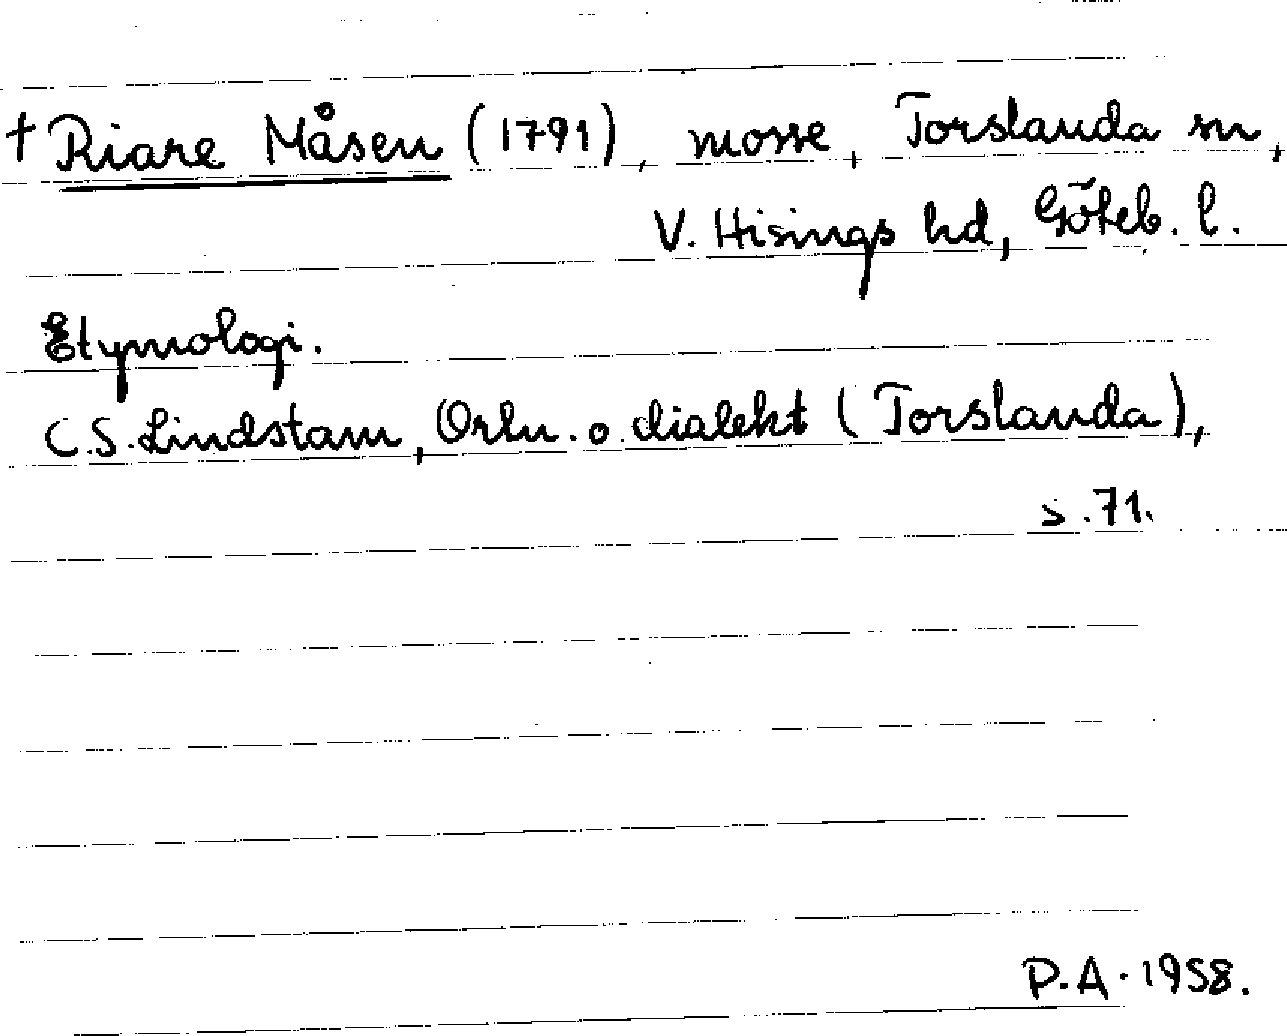 † Riare Måsen (1791), mosse, Torslanda sn,
V. Hisings hd, Göteb. l.
Etymologi.
C.S. Lindstam, Ortn. o. dialekt (Torslanda),
s. 71.
P.A. 1958.